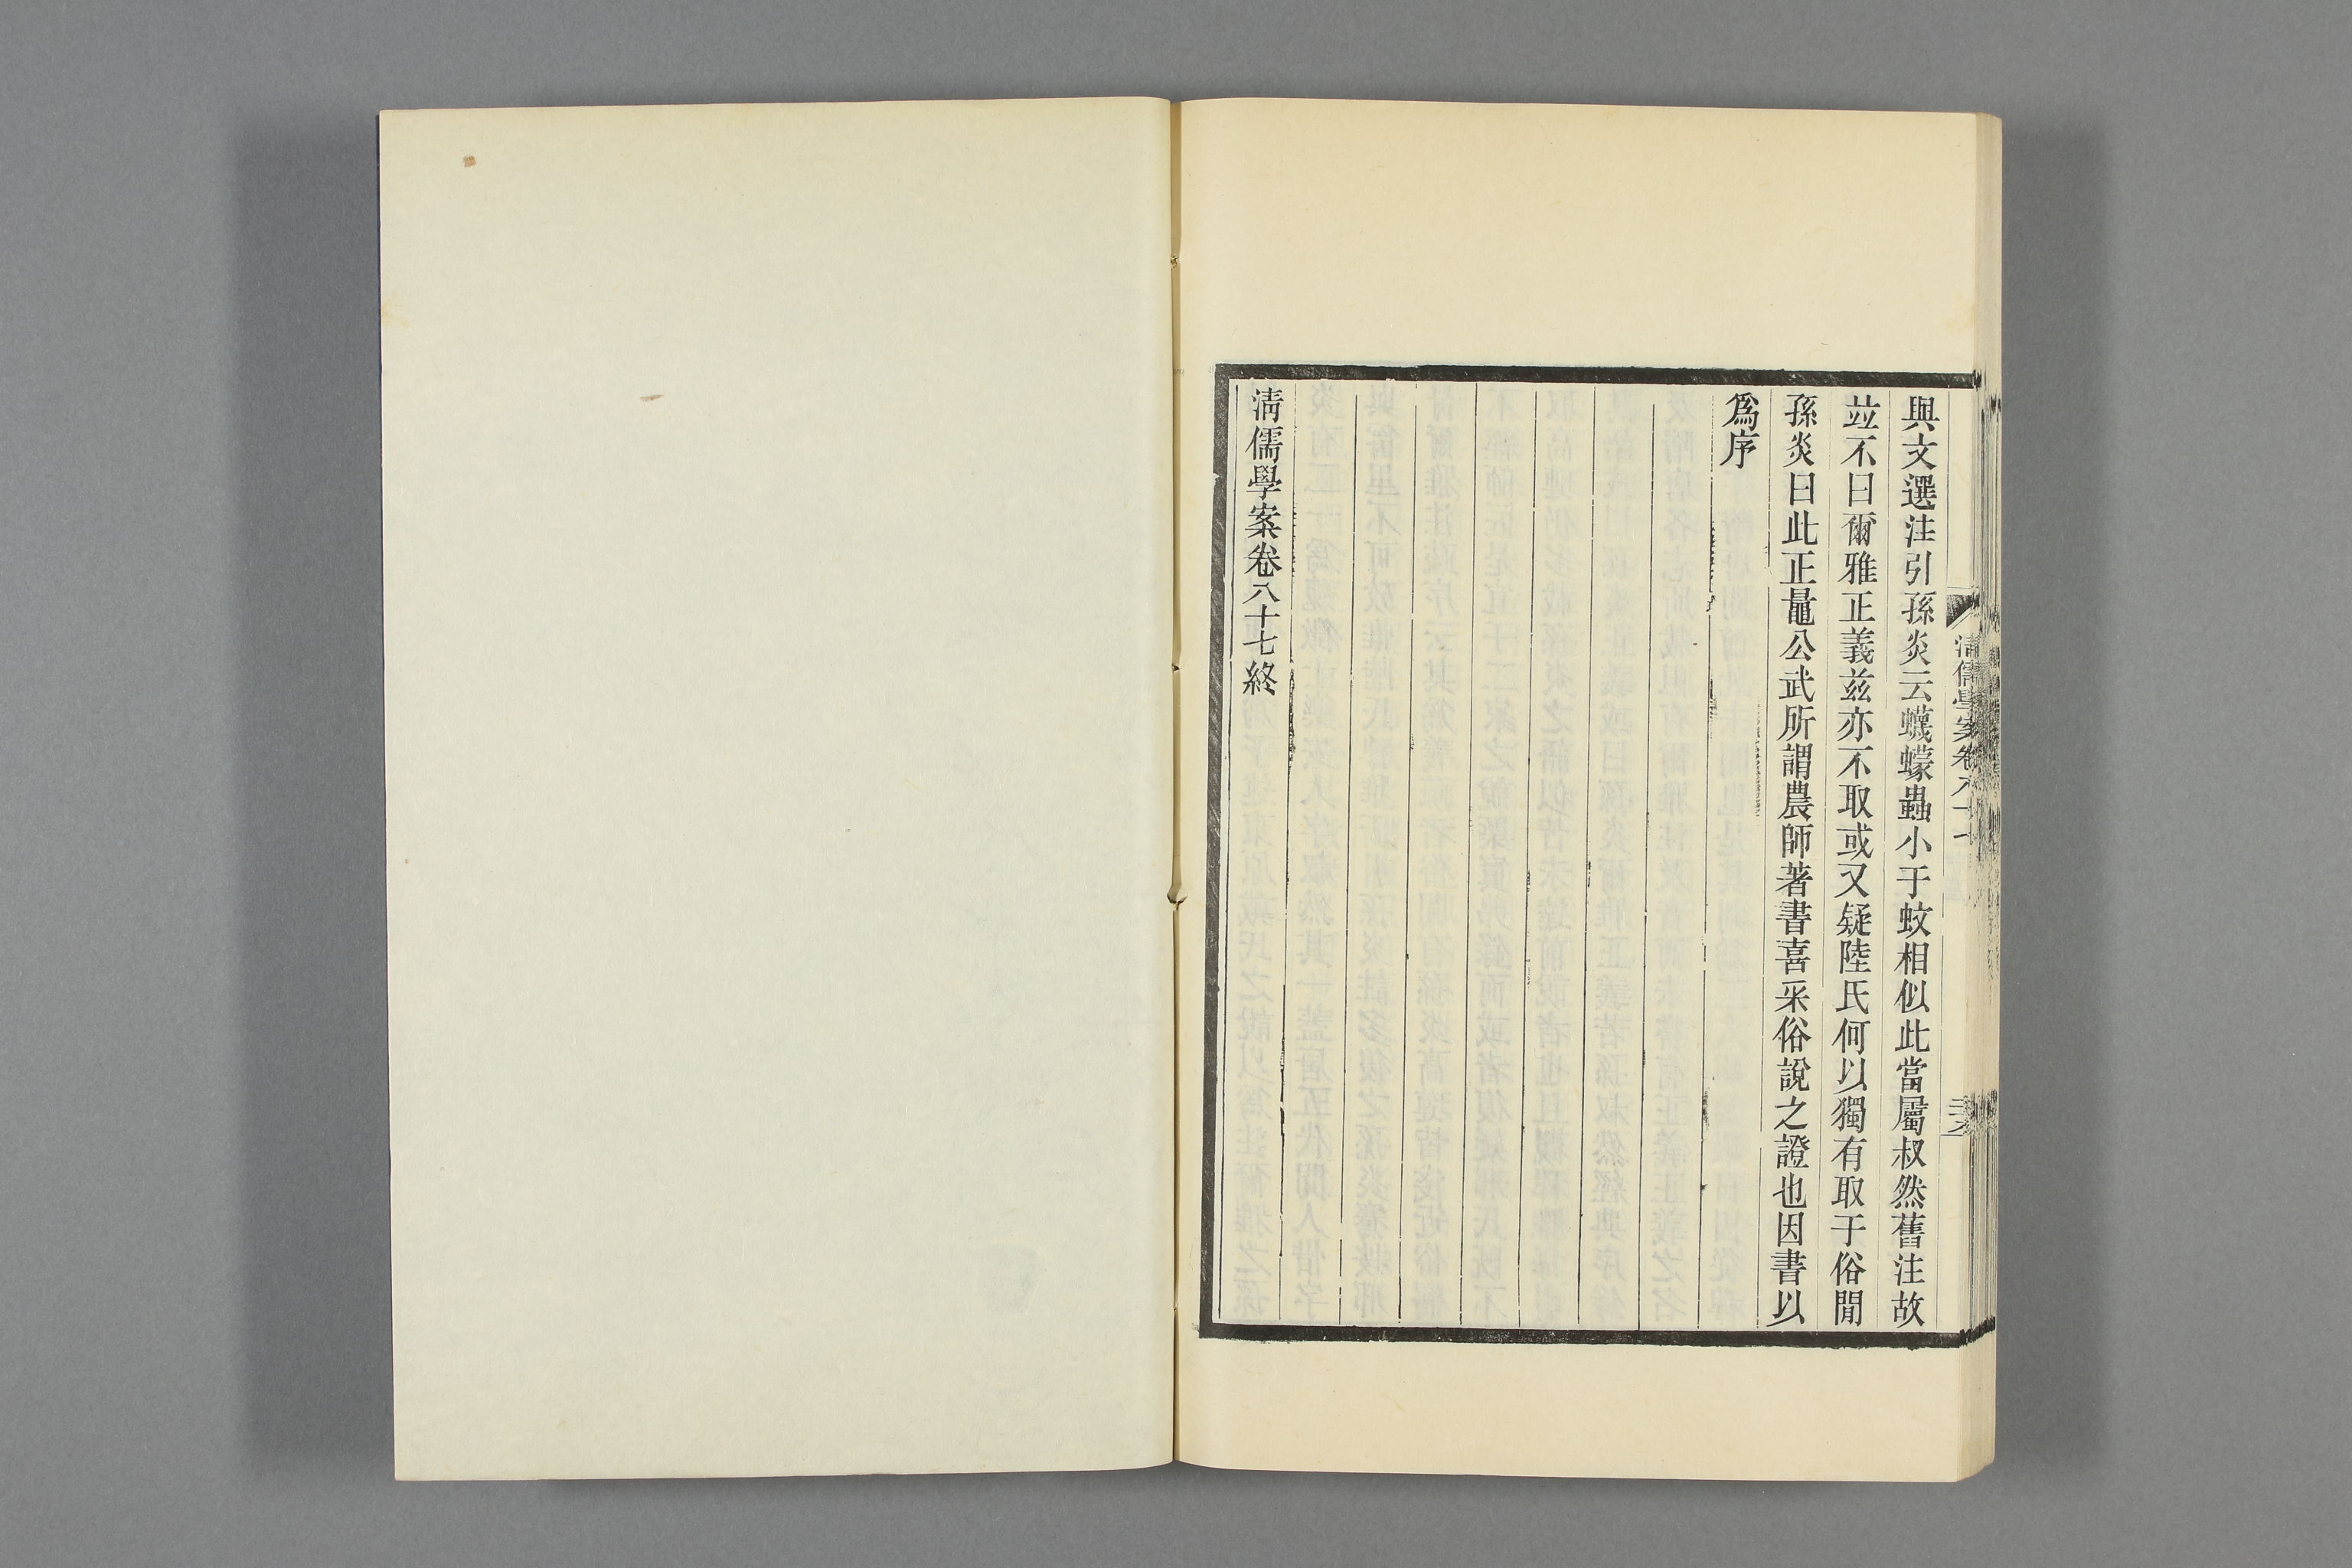 與文選注引孫炎云蠛蠓蟲小于蚊相似此當屬叔然舊注故
竝不曰爾雅正義茲亦不取或又疑陸氏何以獨有取于俗閒
孫炎曰此正鼂公武所謂農師著書喜采俗說之證也因書以
爲序
清儒學案卷八十七終
清儒學案卷八十七